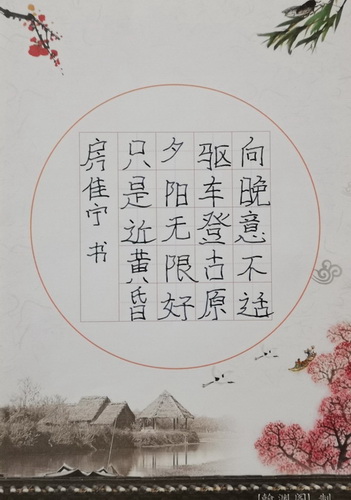 向晚意不适
驱车登古原
夕阳无限好
只是近黄昏
房佳宁 书